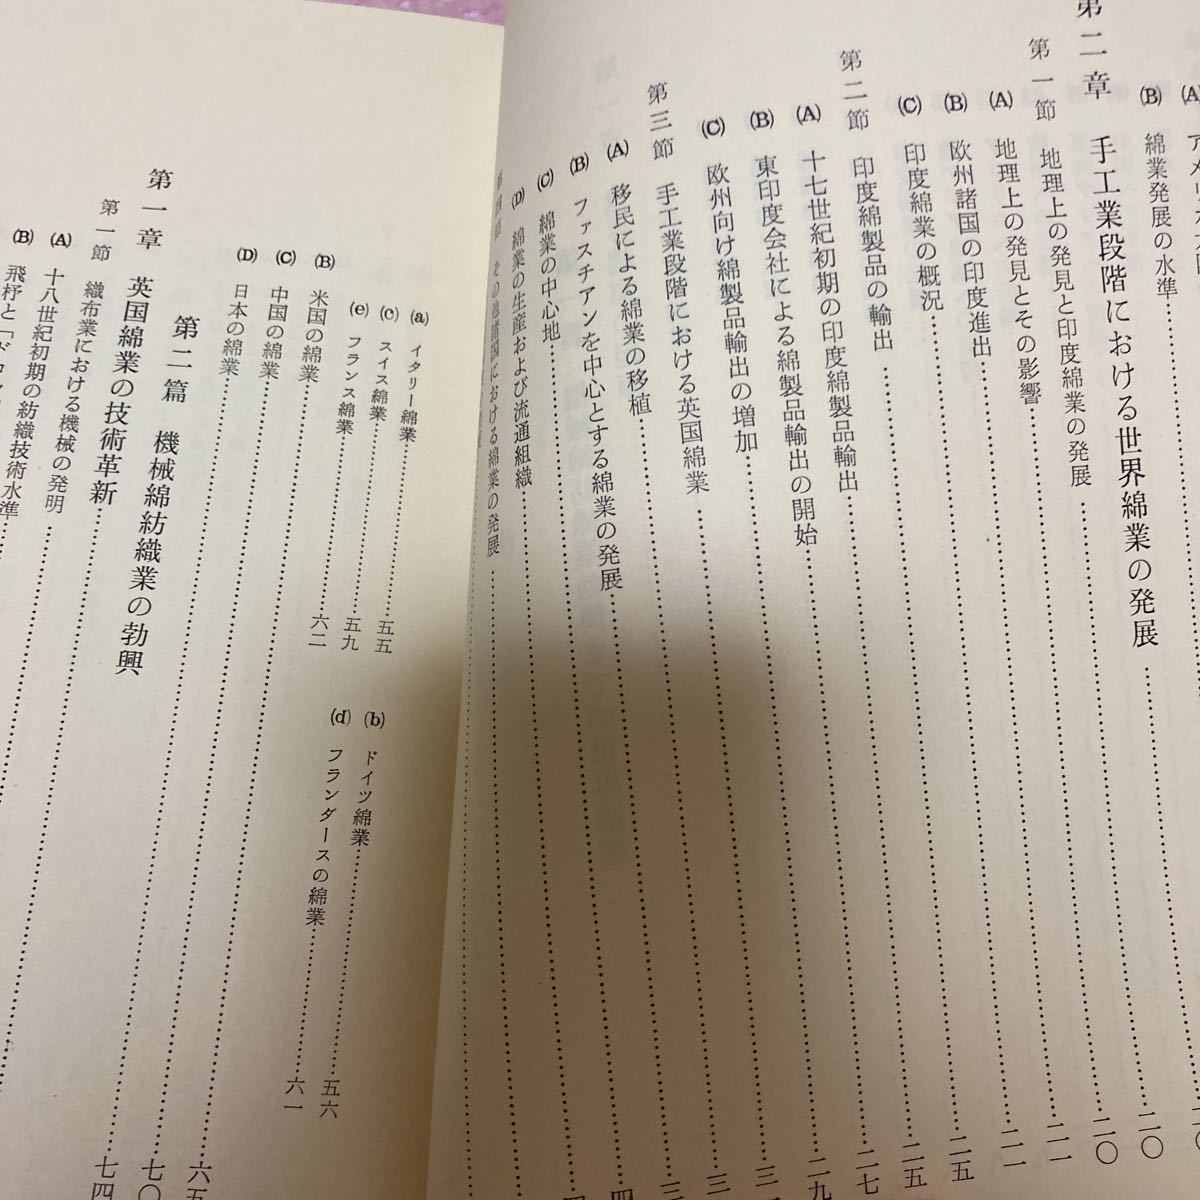 (A)
(B) 綿業発展の水準……二〇
第二章 手工業段階における世界綿業の発展……二〇
第一節 地理上の発見と印度綿業の発展……二一
(A) 地理上の発見とその影響……二一
(B) 欧州諸国の印度進出……二五
(C) 印度綿業の概況……二五
第二節 印度綿製品の輸出……二七
(A) 十七世紀初期の印度綿製品輸出……二九
(B) 東印度会社による綿製品輸出の開始
(C) 欧州向け綿製品輸出の増加
第三節 手工業段階における英国綿業
(A) 移民による綿業の移植
(B) ファスチアンを中心とする綿業の発展
(C) 綿業の中心地
(D) 綿業の生産および流通組織
第四節 その他諸国における綿業の発展
(a) イタリー綿業……五五
(b) ドイツ綿業……五六
(c) スイス綿業……五九
(d) フランダースの綿業……六一
(e) フランス綿業……六二
(B) 米国の綿業
(C) 中国の綿業
(D) 日本の綿業……六五
第二篇 機械綿紡織業の勃興
第一章 英国綿業の技術革新……七〇
第一節 織布業における機械の発明……七四
(A) 十八世紀初期の紡織技術水準
(B) 飛杼と「ドロッ